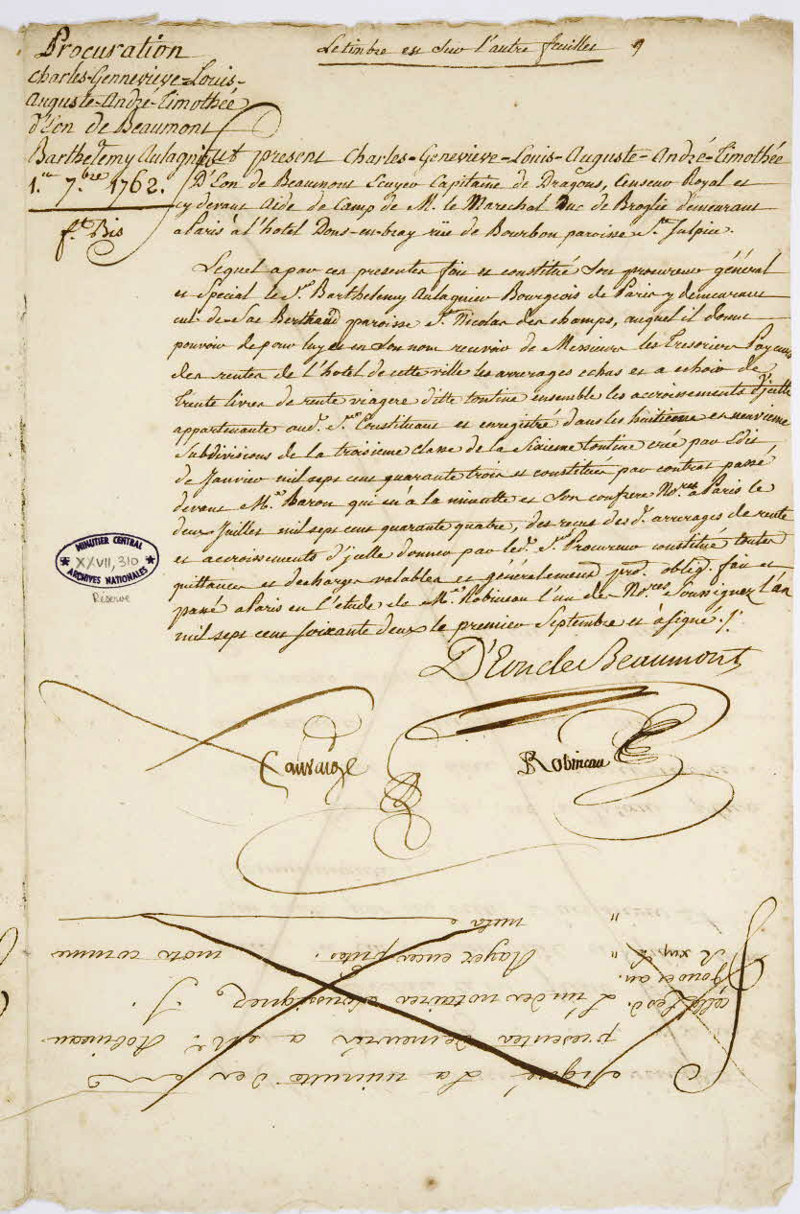 Le timbre est sur l'autre feuille
Procuration
Charles-Genneviéve=Louis-
Auguste-André-Timothée
d'Eon de Beaumont
Barthelemy Aulagnier
1.er 7.bre 1762.
f.t Bis
Fut present Charles=Geneviéve=Louis-Auguste=André-Timothée
D'Eon de Beaumont Ecuyer Capitaine de Dragons, Censeur Royal et
cy devant Aide de Camp de M. le Marechal Duc de Broglie demeurant
a Paris à l'hotel Dons-en-bray rüe de Bourbon paroisse S.t Sulpice.
Lequel a par ces presentes fait et constitué son procureur général
et Special le S.r Barthelemy Aulagnier Bourgeois de Paris y demeurant
cul-de-Sac Berthaud paroisse S.t Nicolas des champs, auquel il donne
pouvoir de pour luy et en son nom recevoir de Messieurs les Tresoriers Payeurs
des rentes de l'hotel de cette ville les arrerages echus et a echoir de
trente livres de rente viagere d'itte tontine ensemble les accroissements d'jcelle
appartenante aud. S.r Constituant et enregistré dans les huitieme et neuvieme
Subdivisions de la troisieme classe de la Sixieme tontine créé par Edit
de Janvier mil sept cent quarante trois et constituée par contrat passé
devant M.e Baron qui en à la minutte et Son confrere No.res à Paris le
deux Juillet mil sept cent quarante quatre, des recus des d. arrerages de rente
et accroissements d'jcelle donner par led. S.r Procureur constitué toutes
quittances et decharges valables et généralement prô. oblig. fait et
passé a Paris en l'étude de M.e Robineau l'un des No.res Soussignez l'an
mil sept cent soixante deux le premier Septembre et à signé ./.
D'Eon de Beaumont
Robineau
MINUTIER CENTRAL
XXVII, 310
ARCHIVES NATIONALES
Réserve
signé La minute des
presentes demeurée a M.e Robineau
L'un des notaires soussignez
Rayer en ces
mots comme
nuls